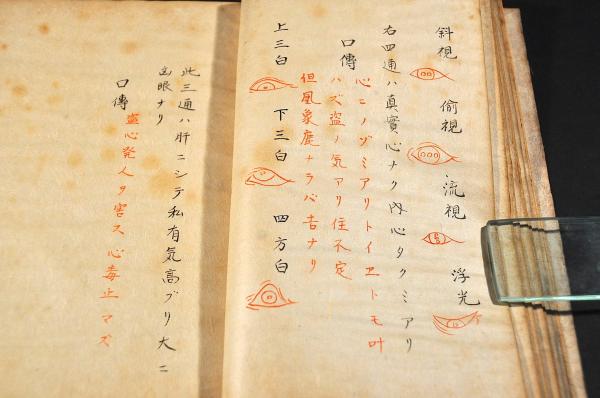 斜視 偷視 流視 浮光
右四通ハ真實心ナク内心タクミアリ
口傳 心ニノゾミアリトイヱトモ叶
ハズ盗ノ気アリ住不定
但風象鹿ナラバ吉ナリ
上三白 下三白 四方白
此三通ハ肝ニシテ私有気高ブリ大ニ
眼ナリ
口傳 盗心発人ヲ害ス心毒止マズ